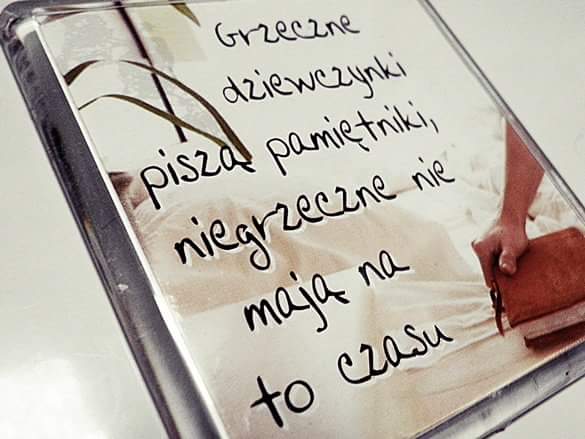 Grzeczne
dziewczynki
piszą pamiętniki,
niegrzeczne nie
mają na
to czasu